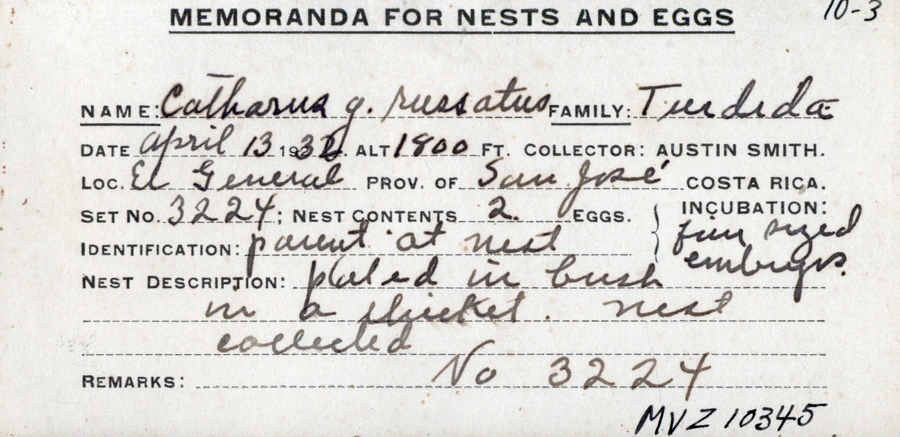 MEMORANDA FOR NESTS AND EGGS 10-3
NAME: Catharus g. russatus FAMILY: Turdidae
DATE April 13 193 ALT 1800 FT. COLLECTOR: AUSTIN SMITH.
LOC. El General PROV. OF San José COSTA RICA.
SET NO. 3224; NEST CONTENTS 2. EGGS. INCUBATION:
IDENTIFICATION: parent at nest sized
embryos.
NEST DESCRIPTION: placed in bush
in a thicket. nest
collected
REMARKS: No 3224
MVZ 10345